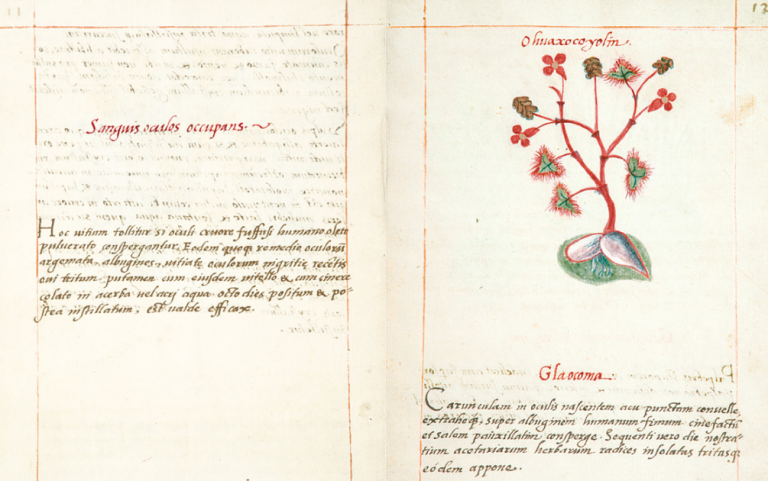 11
Sanguis oculos occupans.
Hoc uitium tollitur si oculi cruore suffusi humano oleto
puluerato conspergantur. Eodem quoq; remedio oculorũ
argemata, albugines, uitiatę oculorum nigritię, recẽtis
oui tritum putamen cum eiusdem uitello & cum cinere
colato in acerba uel acri aqua octo dies positum & po-
stea instillatum, est ualde efficax.
13
Ohuaxocoyolin.
Glaocoma.
Carunculam in oculis nascentem acu punctam conuelle,
extraheq;, super albuginem humanum fimum cinefactũ
et salem pauxillatim consperge. Sequenti uero die nostra-
tium acetariarum herbarum radices insolatas tritasq;
eódem appone.